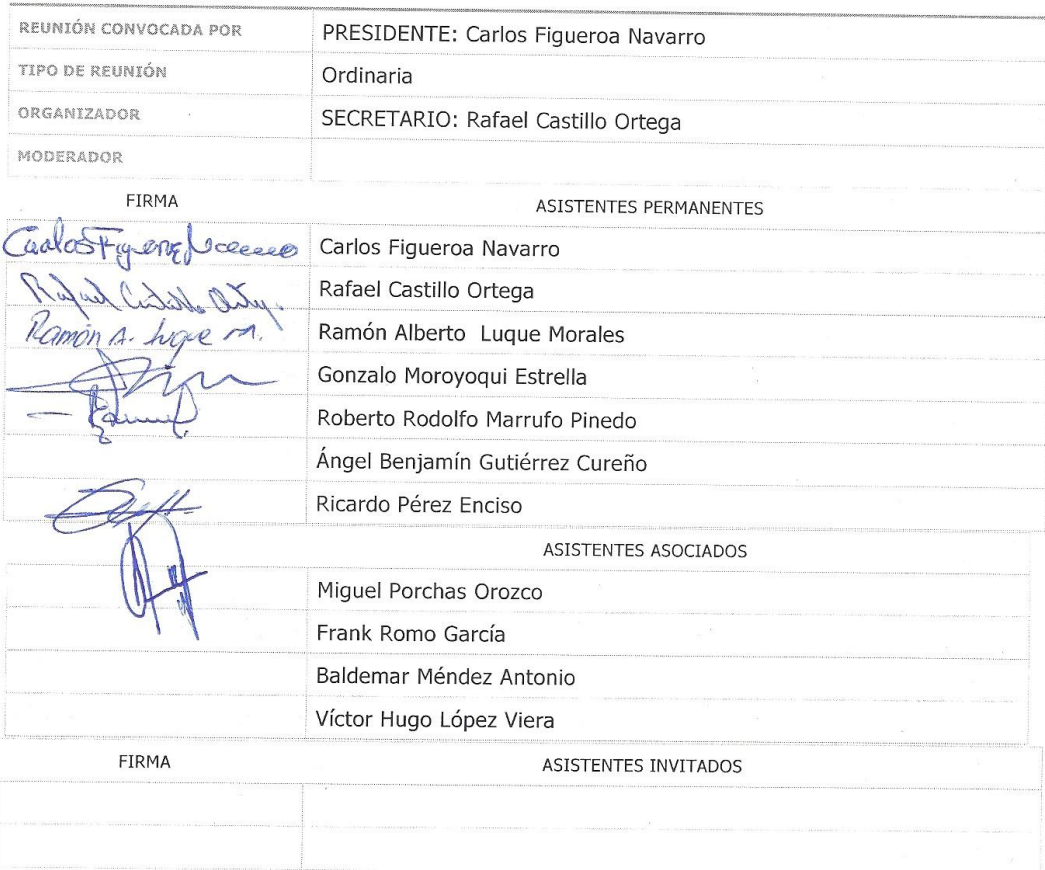 REUNIÓN CONVOCADA POR PRESIDENTE: Carlos Figueroa Navarro
TIPO DE REUNIÓN Ordinaria
ORGANIZADOR SECRETARIO: Rafael Castillo Ortega
MODERADOR
FIRMA ASISTENTES PERMANENTES
Carlos Figueroa Navarro Carlos Figueroa Navarro
Rafael Castillo Ortega Rafael Castillo Ortega
Ramón A. Luque M. Ramón Alberto Luque Morales
Gonzalo Moroyoqui Estrella
Roberto Rodolfo Marrufo Pinedo
Ángel Benjamín Gutiérrez Cureño
Ricardo Pérez Enciso
ASISTENTES ASOCIADOS
Miguel Porchas Orozco
Frank Romo García
Baldemar Méndez Antonio
Víctor Hugo López Viera
FIRMA ASISTENTES INVITADOS